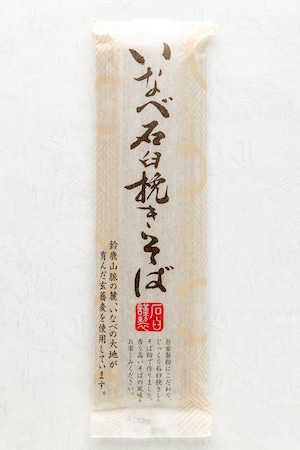 いなべ石臼挽きそば
石臼
謹製
鈴鹿山脈の麓、いなべの大地が
育んだ玄蕎麦を使用しています。
自家製粉にこだわり、
じっくり石臼挽きした
そば粉で作りました。
香り高いそばの風味を
お楽しみください。